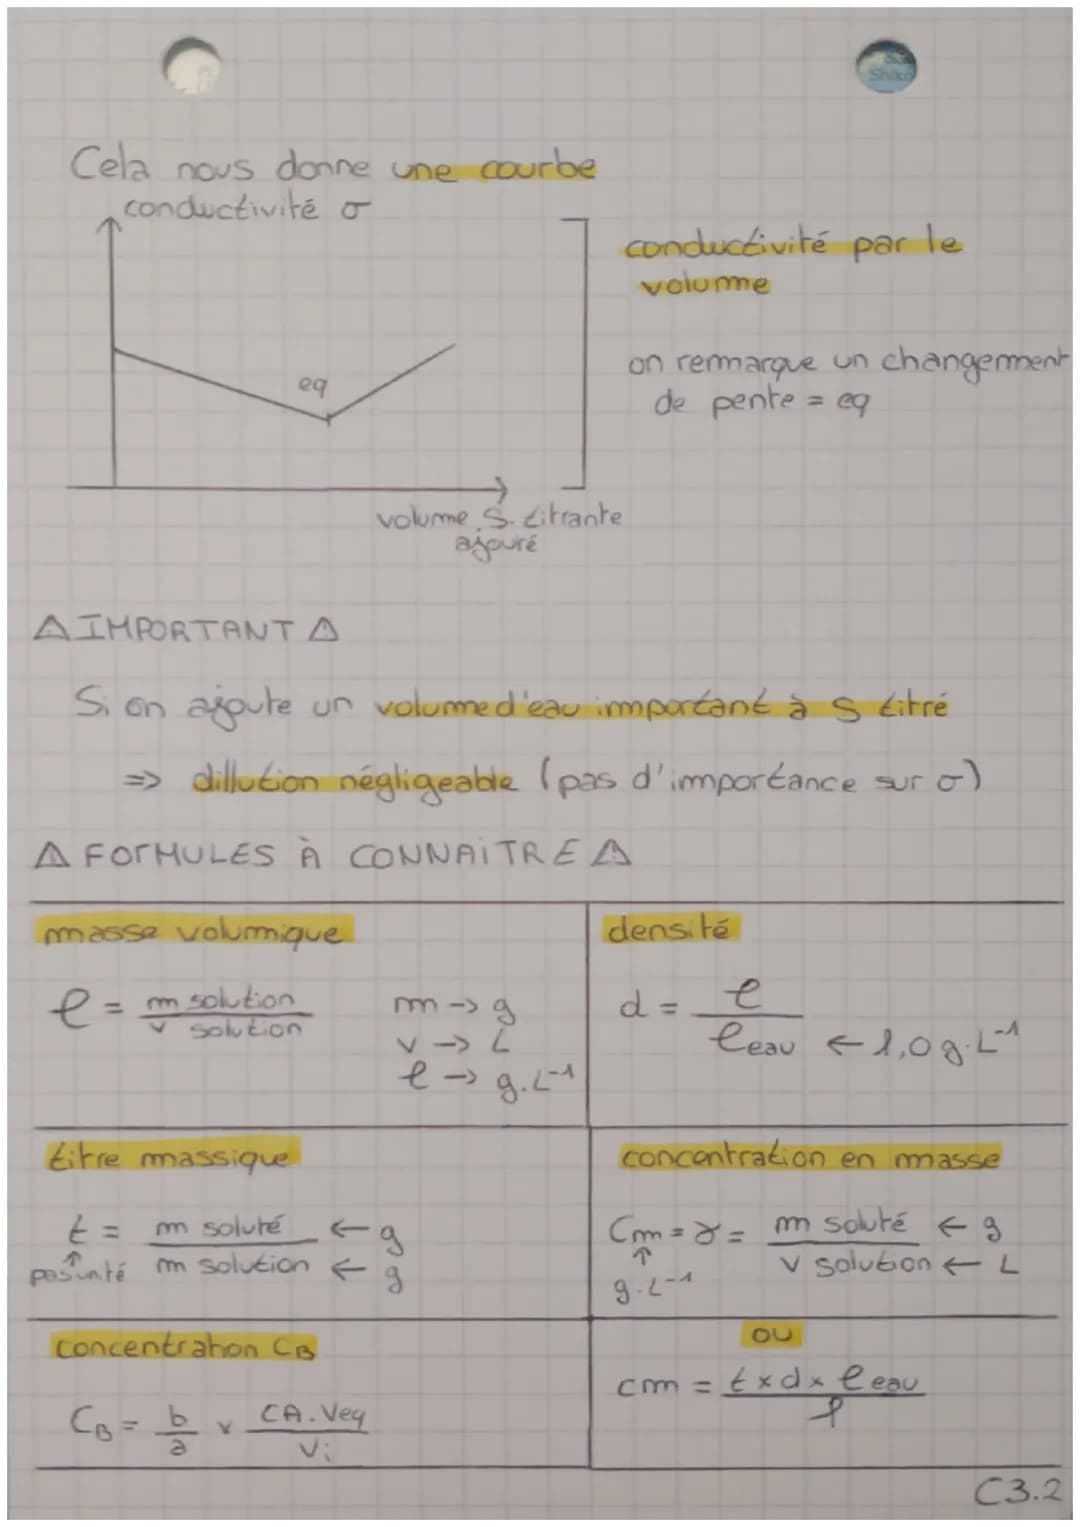 Shiko
Cela nous donne une courbe
conductivité σ
eq
volume S. titrante
ajouté
conductivité par le
volume
on remarque un changement
de pente = eq
⚠ IMPORTANT ⚠
Si on ajoute un volume d'eau important à S titré
=> dillution négligeable (pas d'importance sur σ)
⚠ FORMULES À CONNAITRE ⚠
masse volumique
ρ = m solution / v solution
m → g
v → L
ρ → g.L⁻¹
densité
d = ρ / ρeau ← 1,0 g.L⁻¹
titre massique
t = m soluté ← g / m solution ← g
↑
pas unité
concentration en masse
Cm = γ = m soluté ← g / v solution ← L
↑
g.L⁻¹
concentration CB
CB = b/a x CA.Veq / Vi
ou
cm = t x d x ρeau
C3.2